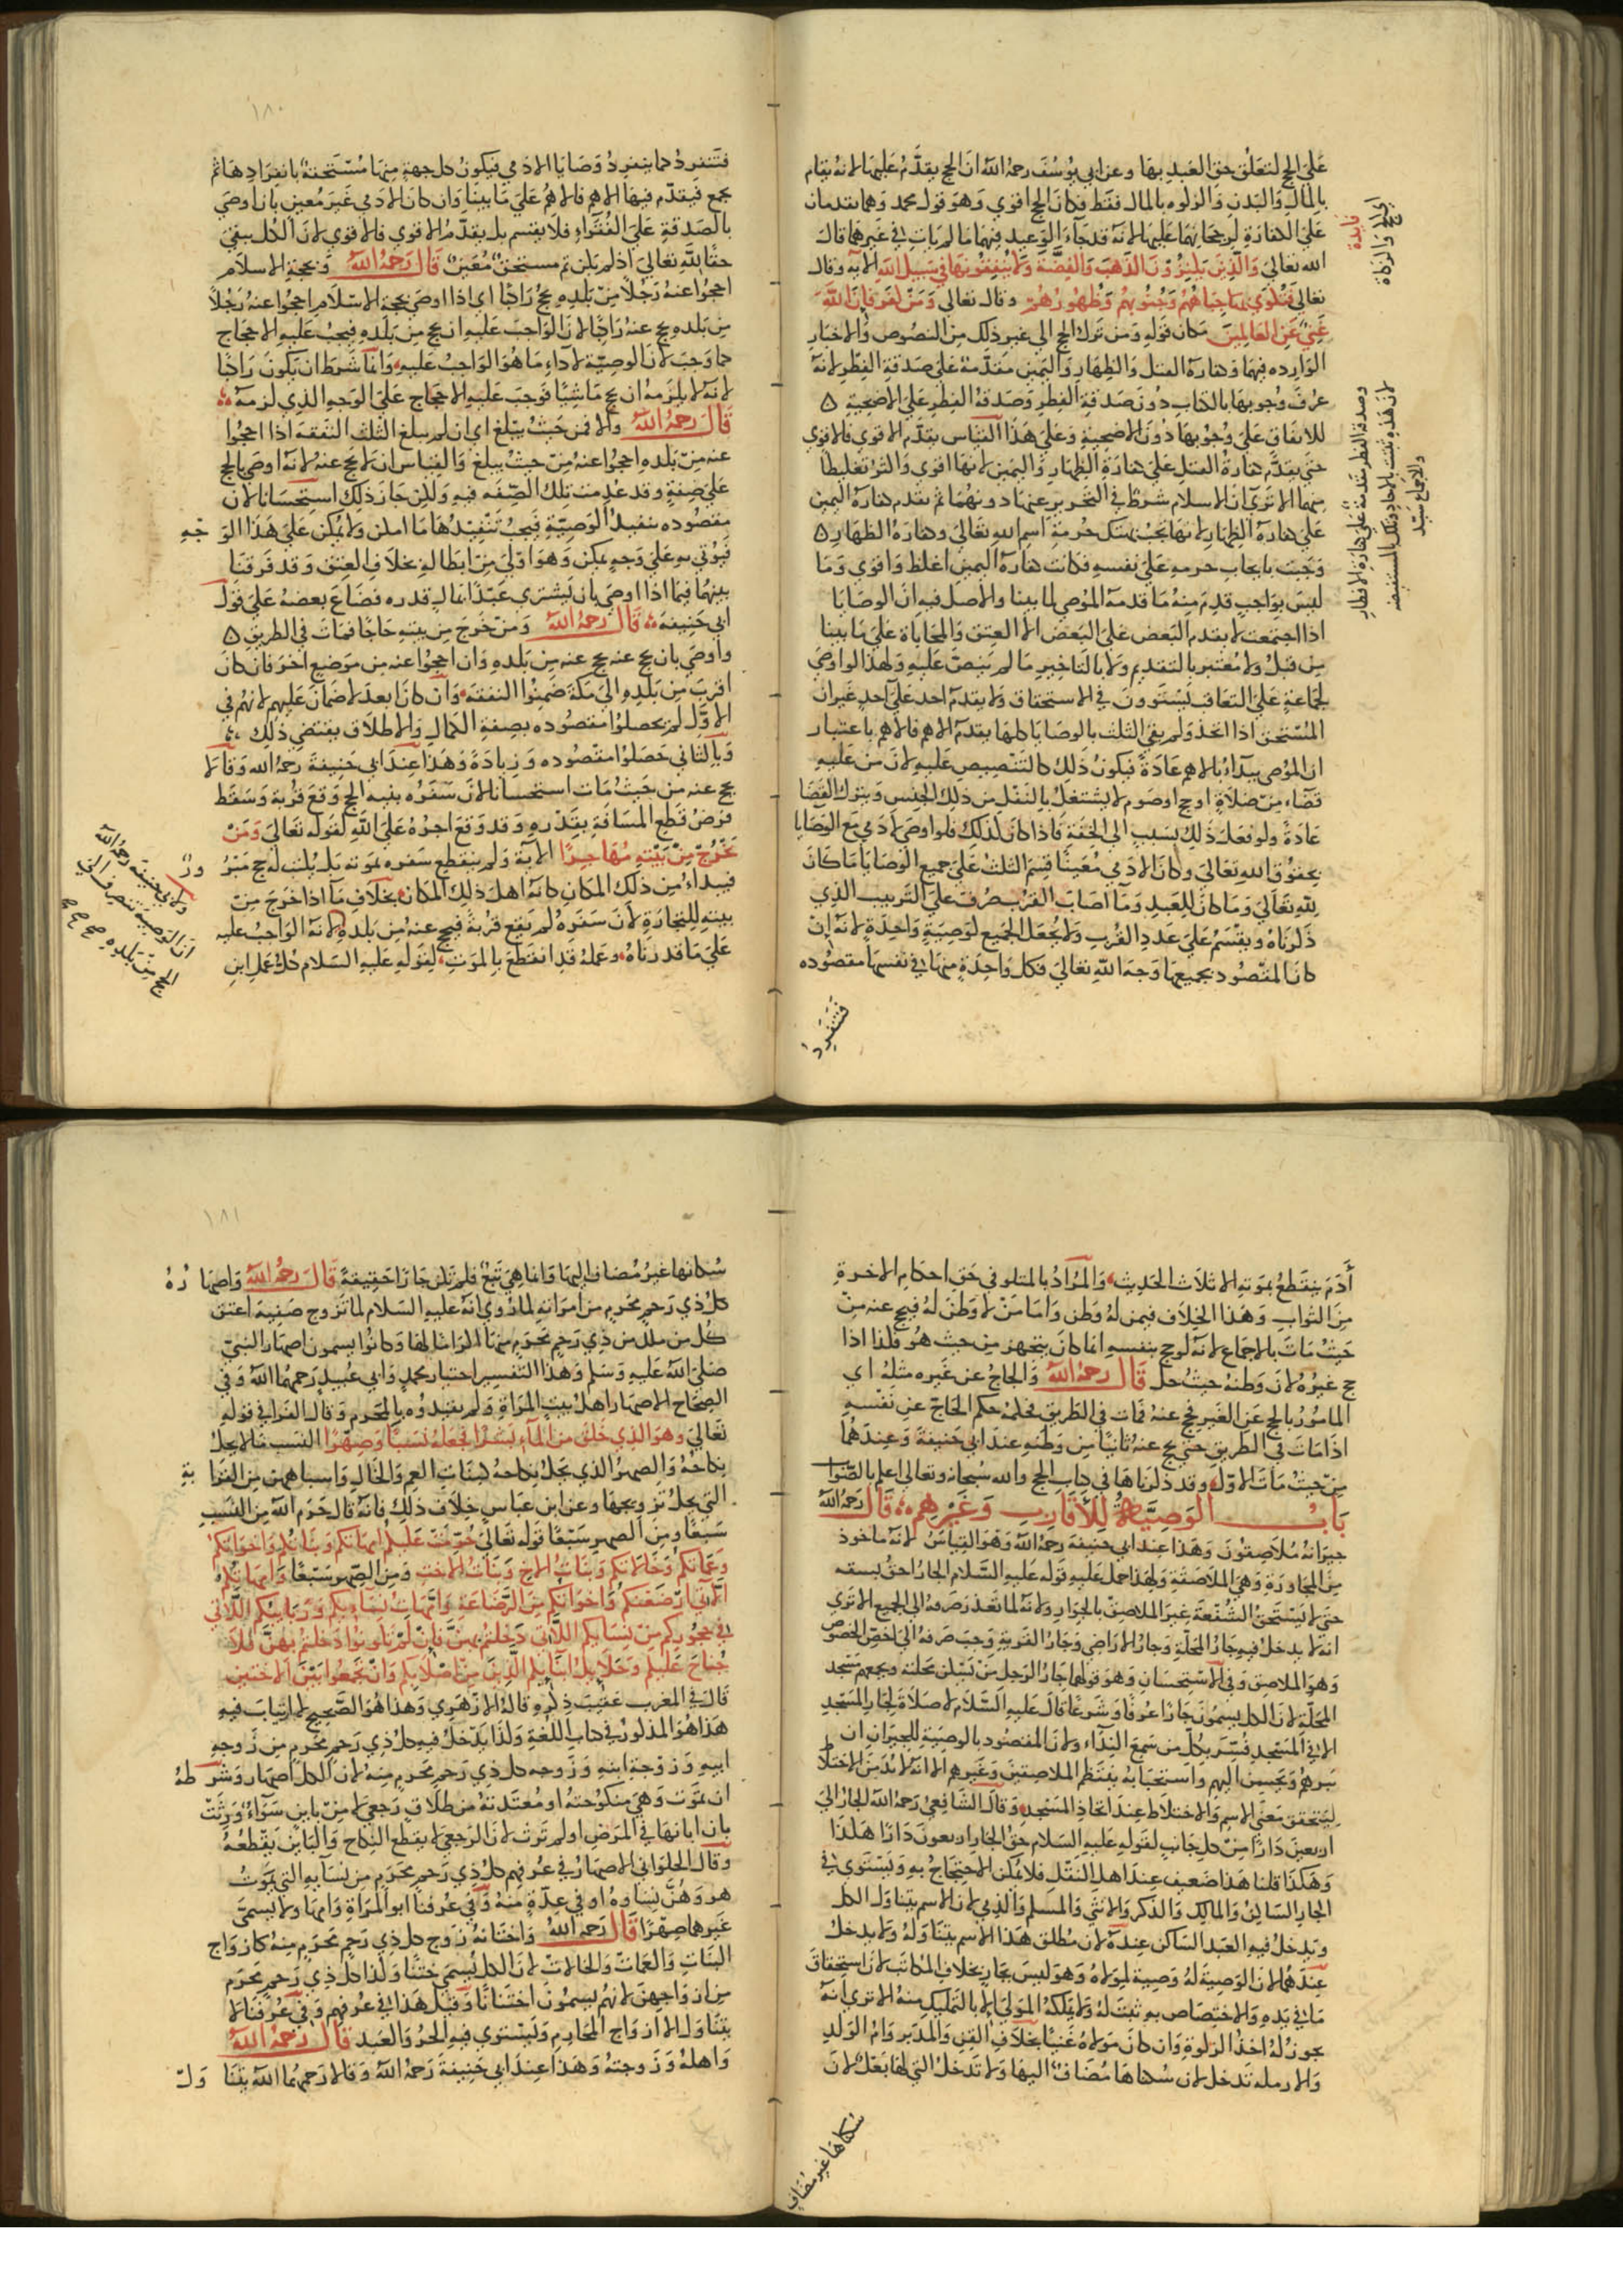 على الحج لتعلق حق العبد بها وعن ابي يوسف رحمه الله ان الحج يقدم عليها لانه يقام
بالمال والبدن والزكوه بالمال فقط فكان الحج اقوي وهو قول محمد وهما يقدمان
على الكفارة لرجحانهما عليها لانه قد جاء الوعيد فيهما ما لم يات في غيرهما قال
الله تعالى والذين يكنزون الذهب والفضة ولا ينفقونها في سبيل الله الايه وقال
تعالى فتكوى بها جباههم وجنوبهم وظهورهم وقال تعالى ومن كفر فان الله
غني عن العالمين مكان قوله ومن ترك الحج الى غير ذلك من النصوص والاخبار
الوارده فيهما وكفارة القتل والظهار واليمين مقدمة على صدقة الفطر لانه
عرف وجوبها بالكتاب دون صدقة الفطر وصدقة الفطر على الاضحية
للاتفاق على وجوبها دون الاضحية وعلى هذا القياس يقدم الاقوي فالاقوي
حتى يقدم كفارة القتل على كفارة الظهار واليمين لانها اقوى واكثر تغليظا
منهما الا ترى ان الاسلام شرط في التحرير عنها دونهما ثم تقدم كفارة اليمين
على كفارة الظهار لانها تجب بهتك حرمة اسم الله تعالى وكفارة الظهار
وجبت بايجاب حرمه على نفسه فكانت كفارة اليمين اغلظ واقوى وما
ليس بواجب قدم منه ما قدمه الموصي لما بينا والاصل فيه ان الوصايا
اذا اجتمعت لا يقدم البعض على البعض الا العتق والمحاباة على ما بينا
من قبل ولا معتبر بالتقديم ولا بالتاخير ما لم ينص عليه ولهذا لو اوصى
لجماعة على التعاقب يستوون في الاستحقاق ولا يقدم احد على احد غير ان
المستحق اذا اتحد ولم يفي الثلث بالوصايا كلها يقدم الاهم فالاهم باعتبار
ان الموصي يبداء بالاهم عادة فيكون ذلك كالتنصيص عليه لان من عليه
قضاء من صلاة او حج او صوم لا يشتغل بالنفل من ذلك الجنس ويترك القضا
عادة ولو فعل ذلك ينسب الى الخفة فاذا كان كذلك فلو اوصى لادمي مع الوصايا
بحقوق الله تعالى وكان الادمي معينا قسم الثلث على جميع الوصايا ما كان
لله تعالى وما كان للعبد وما اصاب القرب صرف على الترتيب الذي
ذكرناه ويقسم على عدد القرب ولا يجعل الجميع كوصية واحدة لانه ان
كان المقصود بجميعها وجه الله تعالى فكل واحدة منها في نفسها مقصوده
فتنفرد
فايدة
الحج والزكاة
وصدقة الفطر مقدمة على كفارة الافطار
والاجماع
١٨٠
فتنفرد كما ينفرد وصايا الادمي فيكون كل جهة منها مستحقة بانفرادها ثم
يجمع فيقدم فيها الاهم فالاهم على ما بينا وان كان الادمي غير معين بان اوصى
بالصدقة على الفقراء فلا يقسم بل يقدم الاقوي فالاقوي لان الكل يبقى
حقا لله تعالى اذ لم يكن ثم مستحق معين قال رحمه الله وبحجة الاسلام
احجوا عنه رجلا من بلده يحج راكبا اي اذا اوصى بحجة الاسلام احجوا عنه رجلا
من بلده يحج عنه راكبا لان الواجب عليه ان يحج من بلده فيجب عليه الاحجاج
كما وجب لان الوصية لاداء ما هو الواجب عليه وانما شرط ان يكون راكبا
لانه لا يلزمه ان يحج ماشيا فوجب عليه الاحجاج على الوجه الذي لزمه
قال رحمه الله والا فمن حيث يبلغ اي ان لم يبلغ الثلث النفقة اذا احجوا
عنه من بلده احجوا عنه من حيث يبلغ والقياس ان لا يحج عنه لانه اوصى بالحج
على صفة وقد عدمت تلك الصفه فيه ولكن جاز ذلك استحسانا لان
مقصوده تنفيذ الوصية فيجب تنفيذها ما امكن ولا يمكن على هذا الوجه
فيؤتى به على وجه يمكن وهو اولى من ابطاله بخلاف العتق وقد فرقنا
بينهما فيما اذا اوصى بان يشترى عبدا بمال قدره فضاع بعضه على قول
ابي حنيفه قال رحمه الله ومن خرج من بيته حاجا فمات في الطريق
واوصى بان يحج عنه يحج عنه من بلده وان احجوا عنه من موضع اخر فان كان
اقرب من بلده الى مكة ضمنوا النفقة وان كان ابعد لا ضمان عليهم لانهم في
الاول لم يحصلوا مقصوده بصفة الكمال والاطلاق يقتضى ذلك
وبالثاني حصلوا مقصوده وزيادة وهذا عند ابي حنيفة رحمه الله وقالا
يحج عنه من حيث مات استحسانا لان سفره بنيه الحج وقع قربة وسقط
فرض قطع المسافة بقدره وقد وقع اجره على الله لقوله تعالى ومن
يخرج من بيته مهاجرا الاية ولم ينقطع سفره بموته بل يكتب له حج مبرور
فيبداء من ذلك المكان كانه اهل ذلك المكان بخلاف ما اذا خرج من
بيته للتجارة لان سفره لم يقع قربة فيحج عنه من بلده لانه الواجب عليه
على ما قدرناه وعمله قد انقطع بالموت لقوله عليه السلام كل عمل ابن
ولابي حنيفه رحمه الله
ان الوصية تنصرف الى
الحج من بلده صح صح صح
أدم ينقطع بموته الا ثلاث الحديث والمراد بالمتلو في حق احكام الاخرة
من الثواب وهذا الخلاف فيمن له وطن واما من لا وطن له فيحج عنه من
حيث مات بالاجماع لانه لو حج بنفسه انما كان يتجهز من حيث هو فكذا اذا
حج غيره لان وطنه حيث حل قال رحمه الله والحاج عن غيره مثله اي
المامور بالحج عن الغير فحج عنه فمات في الطريق فحكمه حكم الحاج عن نفسه
اذا مات في الطريق حتى يحج عنه ثانيا من وطنه عند ابي حنيفة وعندهما
من حيث مات الاول وقد ذكرناها في كتاب الحج والله سبحانه وتعالى اعلم بالصواب
باب الوصية للأقارب وغيرهم قال رحمه الله
جيرانه ملاصقون وهذا عند ابي حنيفة رحمه الله وهو القياس لانه ماخوذ
من المجاورة وهي الملاصقة ولهذا حمل عليه قوله عليه السلام الجار احق بسقبه
حتى لا يستحق الشفعة غير الملاصق بالجوار ولانه لما تعذر صرفه الى الجميع الا ترى
انه لا يدخل فيه جار المحلة وجار الاراضي وجار القرية وجب صرفه الى اخص الخصوص
وهو الملاصق وفي الاستحسان وهو قولهما جار الرجل من يسكن محلته ويجمعهم مسجد
المحلة لان الكل يسمون جارا عرفا وشرعا قال عليه السلام لا صلاة لجار المسجد
الا في المسجد فسر بكل من سمع النداء ولان المقصود بالوصية للجيران ان
يبرهم ويحسن اليهم واستحبابه ينتظم الملاصقين وغيرهم الا انه لا بد من الاختلاط
ليتحقق معنى الاسم والاختلاط عند اتحاد المسجد وقال الشافعي رحمه الله الجار الى
اربعين دارا من كل جانب لقوله عليه السلام حق الجار اربعون دارا هكذا
وهكذا قلنا هذا ضعيف عند اهل النقل فلا يمكن الاحتجاج به ويستوي في
الجار الساكن والمالك والذكر والانثى والمسلم والذمي لان الاسم يتناول الكل
ويدخل فيه العبد الساكن عنده لان مطلق هذا الاسم يتناوله ولا يدخل
عندهما لان الوصية له وصية لمولاه وهو ليس بجار بخلاف المكاتب لان استحقاق
ما في يده والاختصاص به ثبت له ولا يملكه المولى الا بالتمليك منه الا ترى انه
يجوز له اخذ الزكوة وان كان مولاه غنيا بخلاف القن والمدبر وام الولد
والارمله تدخل لان سكناها مضاف اليها ولا تدخل التي لها بعل لان
سكناها غير مضاف
١٨١
سكناها غير مضاف اليها وانما هي تبع فلم تكن جارا حقيقة قال رحمه الله واصهاره
كل ذي رحم محرم من امراته لما روي انه عليه السلام لما تزوج صفية اعتق
كل من ملك من ذي رحم محرم منها اكراما لها وكانوا يسمون اصهار النبي
صلى الله عليه وسلم وهذا التفسير اختيار محمد وابي عبيد رحمهما الله وفي
الصحاح الاصهار اهل بيت المراة ولم يقيدوه بالمحرم وقال الفرا في قوله
تعالى وهو الذي خلق من الماء بشرا فجعله نسبا وصهرا النسب ما لا يحل
نكاحه والصهر الذي يحل نكاحه كبنات العم والخال واشباههن من القرابة
التي يحل تزويجها وعن ابن عباس خلاف ذلك فانه قال حرم الله من النسب
سبعا ومن الصهر سبعا قوله تعالى حرمت عليكم امهاتكم وبناتكم واخواتكم
وعماتكم وخالاتكم وبنات الاخ وبنات الاخت ومن الصهر سبعا وامهاتكم
اللاتي ارضعنكم واخواتكم من الرضاعة وامهات نساءكم وربايبكم اللاتي
في حجوركم من نسايكم اللاتي دخلتم بهن فان لم تكونوا دخلتم بهن فلا
جناح عليكم وحلايل ابنايكم الذين من اصلابكم وان تجمعوا بين الاختين
قال في المغرب عقيب ذكره قاله الازهري وهذا هو الصحيح لا ارتياب فيه
هذا هو المذكور في كتاب اللغة ولذا يدخل فيه كل ذي رحم محرم من زوجه
ابيه وزوجة ابنه وزوجه كل ذي رحم محرم منه لان الكل اصهار وشرطه
ان يموت وهي منكوحته او معتدته من طلاق رجعي لا من باين سواء ورثت
بان ابانها في المرض او لم ترث لان الرجعي لا يقطع النكاح والباين يقطعه
وقال الحلواني الاصهار في عرفهم كل ذي رحم محرم من نسايه التي يموت
هو وهن نساوه او في عدة منه وفي عرفنا ابو المراة وامها ولا يسمى
غيرهما صهرا قال رحمه الله واختانه زوج كل ذي رحم محرم منه كازواج
البنات والعمات والخالات لان الكل يسمى ختنا وكذا كل ذي رحم محرم
من ازواجهن لانهم يسمون اختانا وقيل هذا في عرفهم وفي عرفنا لا
يتناول الا ازواج المحارم ويستوي فيه الحر والعبد قال رحمه الله
واهله وزوجته وهذا عند ابي حنيفة رحمه الله وقالا رحمهما الله يتناول